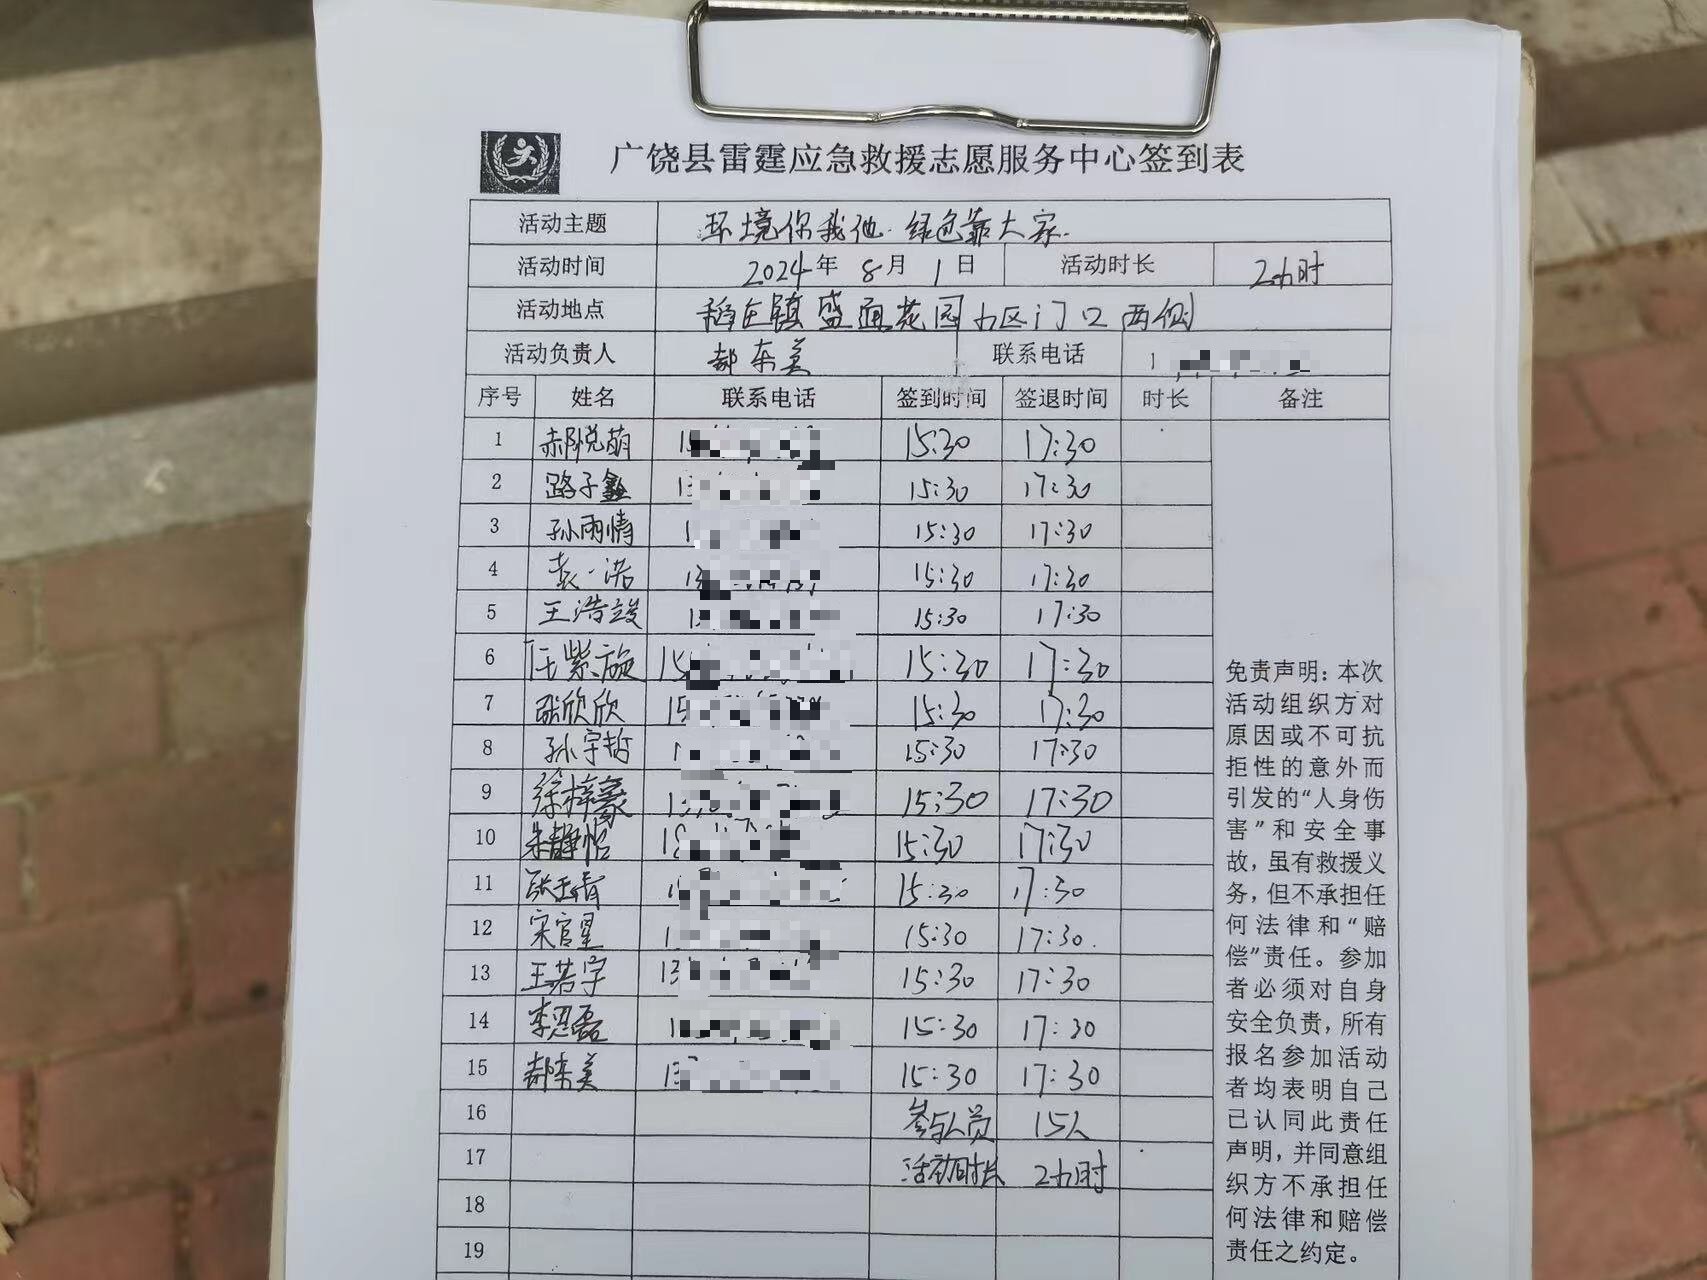 广饶县雷霆应急救援志愿服务中心签到表
活动主题 环境你我他.绿色靠大家.
活动时间 2024年 8月 1日 活动时长 2小时
活动地点 稻庄镇盛通花园小区门口两侧
活动负责人 郝东美 联系电话 1
序号 姓名 联系电话 签到时间 签退时间 时长 备注
1 郝悦萌 15:30 17:30
2 路子鑫 13 15:30 17:30
3 孙雨情 1 15:30 17:30
4 袁一诺 13 15:30 17:30
5 王浩竣 15:30 17:30
6 任紫旋 15 15:30 17:30
7 张欣欣 15 15:30 17:30
8 孙宇哲 1 15:30 17:30
9 徐梓豪 15:30 17:30
10 朱静怡 15:30 17:30
11 张玉睛 15:30 17:30
12 宋官星 1 15:30 17:30.
13 王若宇 13 15:30 17:30
14 李恩磊 1 15:30 17:30
15 郝东美 13 15:30 17:30
16 参与人员 15人
17 活动时长 2小时
18
19
免责声明：本次
活动组织方对
原因或不可抗
拒性的意外而
引发的“人身伤
害”和安全事
故，虽有救援义
务，但不承担任
何法律和“赔
偿”责任。参加
者必须对自身
安全负责，所有
报名参加活动
者均表明自己
已认同此责任
声明，并同意组
织方不承担任
何法律和赔偿
责任之约定。